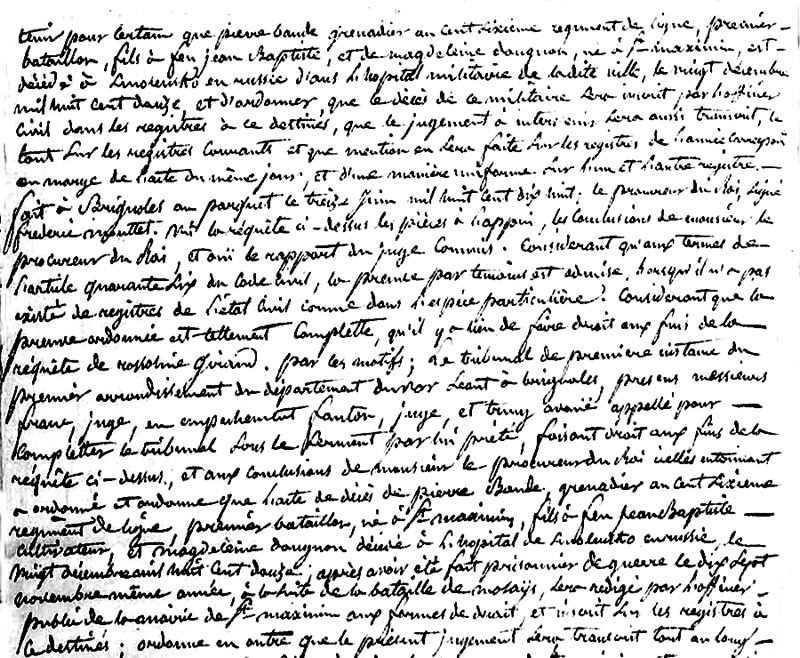 tenir pour certain que pierre bande grenadier au cent sixieme regiment de ligne, premier
bataillon, fils à feu jean Baptiste, et de magdeleine daugnon, né à St maximin, est
décédé à Smolensko en russie dans l'hopital militaire de ladite ville, le vingt décembre
mil huit cent douze, et d'ordonner, que le décès de ce militaire sera inscrit par l'officier
civil dans les registres à ce destinés, que le jugement à intervenir sera aussi transcrit, le
tout sur les registres courants et que mention en sera faite sur les registres de l'année
en marge de l'acte du même jour, et d'une manière uniforme sur l'un et l'autre registre. —
fait à Brignoles au parquet le treize Juin mil huit cent dix huit; le procureur du Roi, signé
frederic mouttet. Vu la réquête ci-dessus les pièces à l'appui, les conclusions de monsieur le
procureur du Roi, et oui le rapport du juge commis. Considérant qu'aux termes de
l'article quarante six du Code Civil, la preuve par temoins est admise, lorsqu'il n'a pas
existé de registres de l'état civil comme dans l'espèce particulière. Considerant que la
preuve ordonnée est tellement complette, qu'il y a lieu de faire droit aux fins de la
réquête de rossoline Guérin. par ces motifs; Le tribunal de premiere instance du
premier arrondissement du département du var séant à brignoles, presens messieurs
franc, juge, en empechement fanton, juge, et truny avoué appellé pour —
completter le tribunal sous le serment par lui prété, faisant droit aux fins de la
réquête ci-dessus, et aux conclusions de monsieur le procureur du Roi icelles entérinant
a ordonné et ordonne que l'acte de décès de pierre Bande, grenadier au cent sixieme
regiment de ligne, premier bataillon, né à St maximin, fils à feu jean Baptiste —
cultivateur, et magdeleine daugnon décédé à l'hopital de Smolensko en russie, le
vingt décembre mil huit cent douze; après avoir été fait prisonnier de guerre le dix sept
novembre même année, à la suite de la bataille de mosaÿs, sera redigé par l'officier
public de la mairie de St maximin aux formes de droit, et inscrit sur les registres à
ce destinés; ordonne en outre que le présent jugement sera transcrit tout au long —